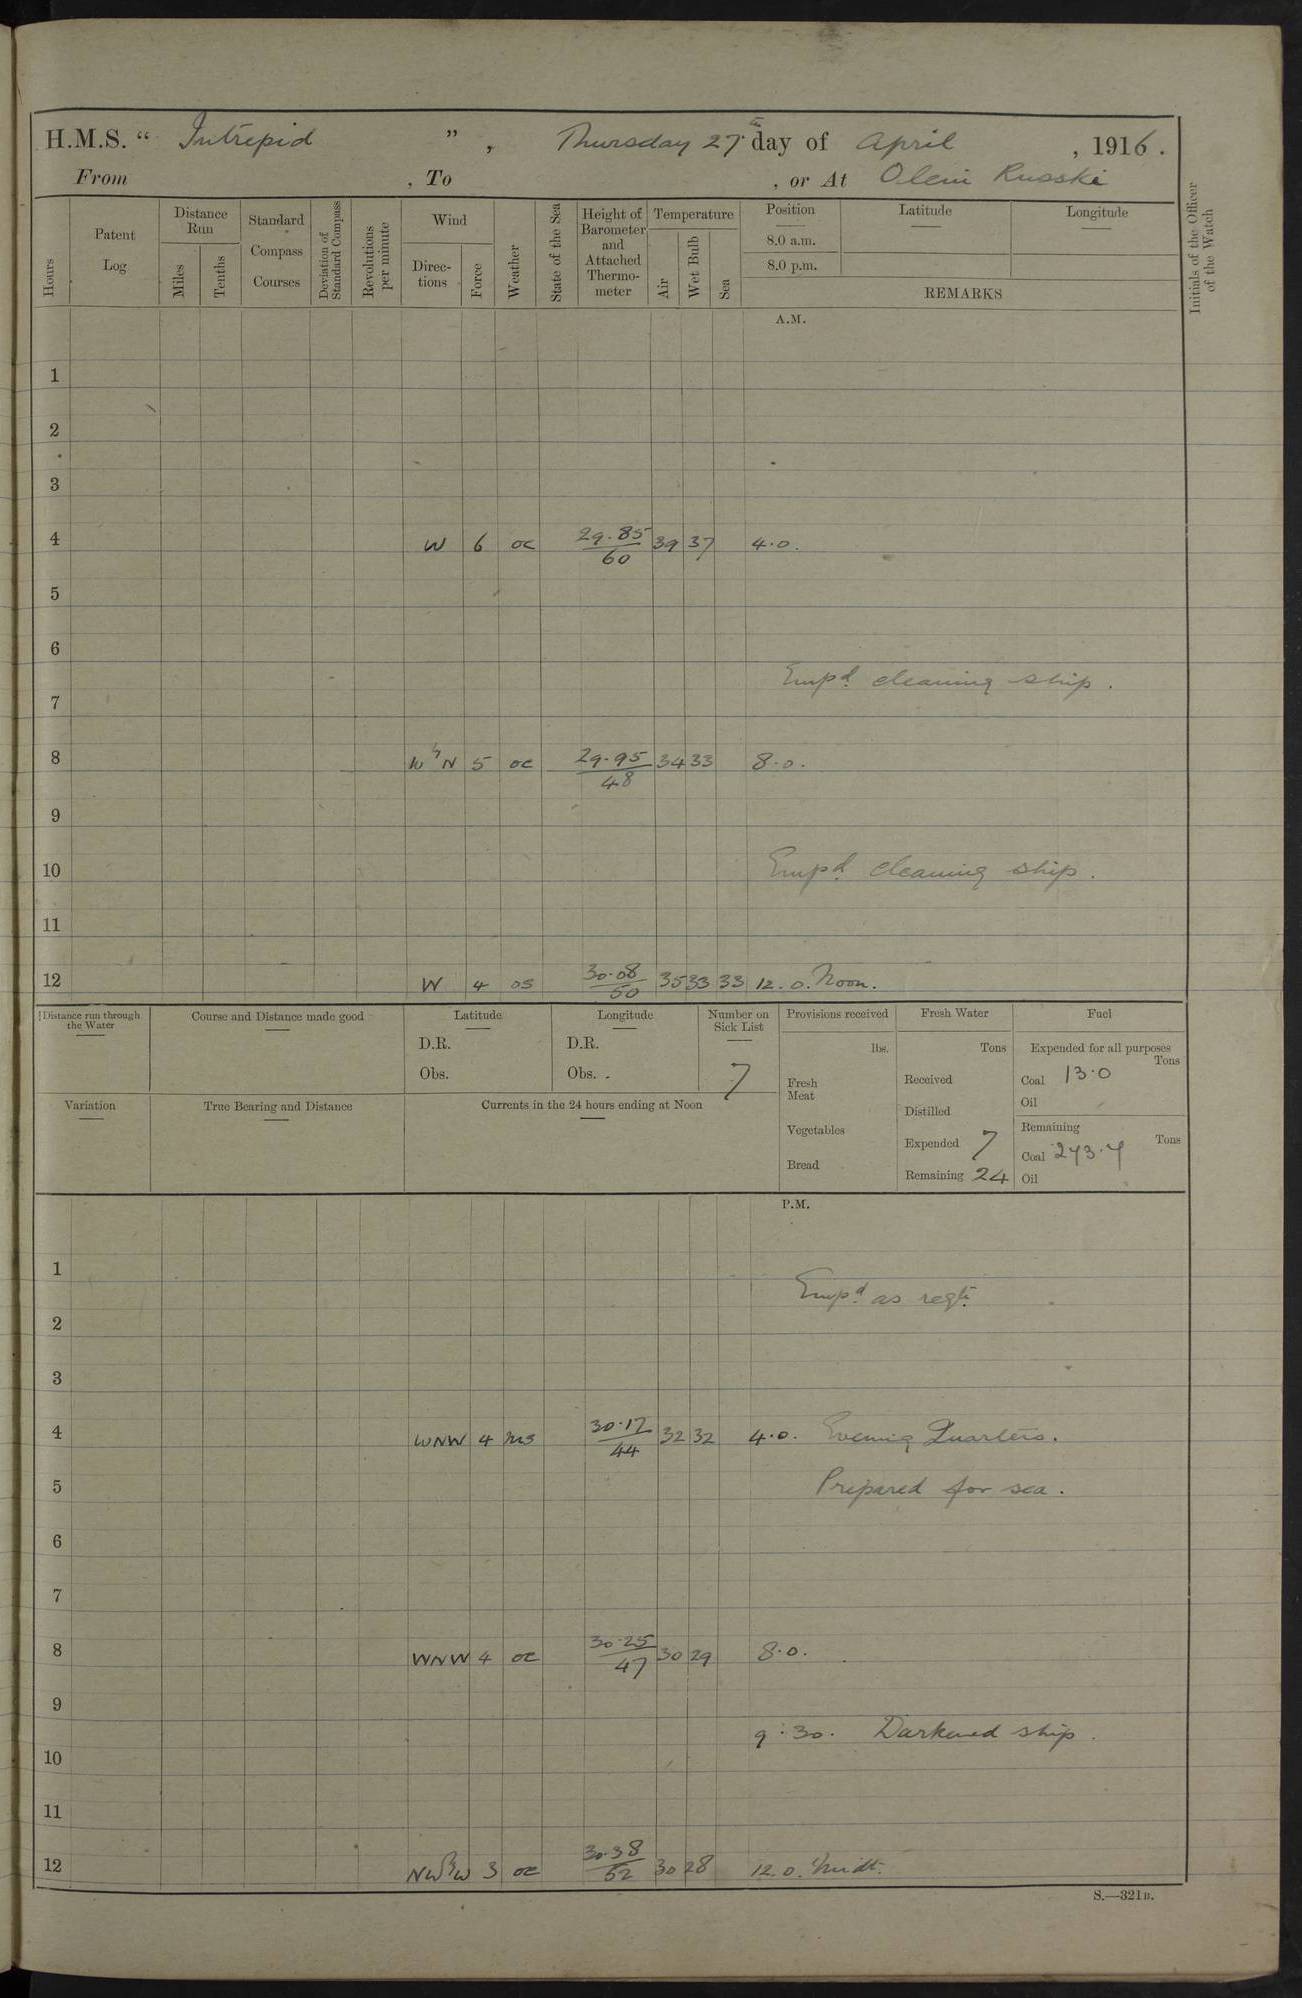 H.M.S. " Intrepid " , Thursday 27th day of April , 1916 .
From , To , or At Oleni Russki
Hours Patent Log Distance Run Miles Tenths Standard Compass Courses Deviation of Standard Compass Revolutions per minute Wind Direc-tions Force Weather State of the Sea Height of Barometer and Attached Thermo-meter Temperature Air Wet Bulb Sea Position Latitude Longitude Initials of the Officer of the Watch
8.0 a.m.
8.0 p.m.
REMARKS
A.M.
1
2
3
4 W 6 oc 29.85/60 39 37 4.0.
5
6
Empd. cleaning ship.
7
8 W by N 5 oc 29.95/48 34 33 8.0.
9
10 Empd. cleaning ship.
11
12 W 4 os 30.08/50 35 33 33 12.0. Noon.
Distance run through the Water Course and Distance made good Latitude Longitude Number on Sick List Provisions received Fresh Water Fuel
D.R. D.R. lbs. Tons Expended for all purposes Tons
Obs. Obs. 7 Fresh Meat Received Coal 13.0
Oil
Variation True Bearing and Distance Currents in the 24 hours ending at Noon Distilled
Vegetables Expended 7 Remaining Tons
Coal 243.4
Bread Remaining 24 Oil
P.M.
1
Empd. as reqt.
2
3
4 WNW 4 ms 30.17/44 32 32 4.0. Evening Quarters.
5 Prepared for sea.
6
7
8 WNW 4 oc 30.25/47 30 29 8.0.
9
9.30. Darkened ship.
10
11
12 NW by W 3 oc 30.38/52 30 28 12.0. Midt.
S.—321B.